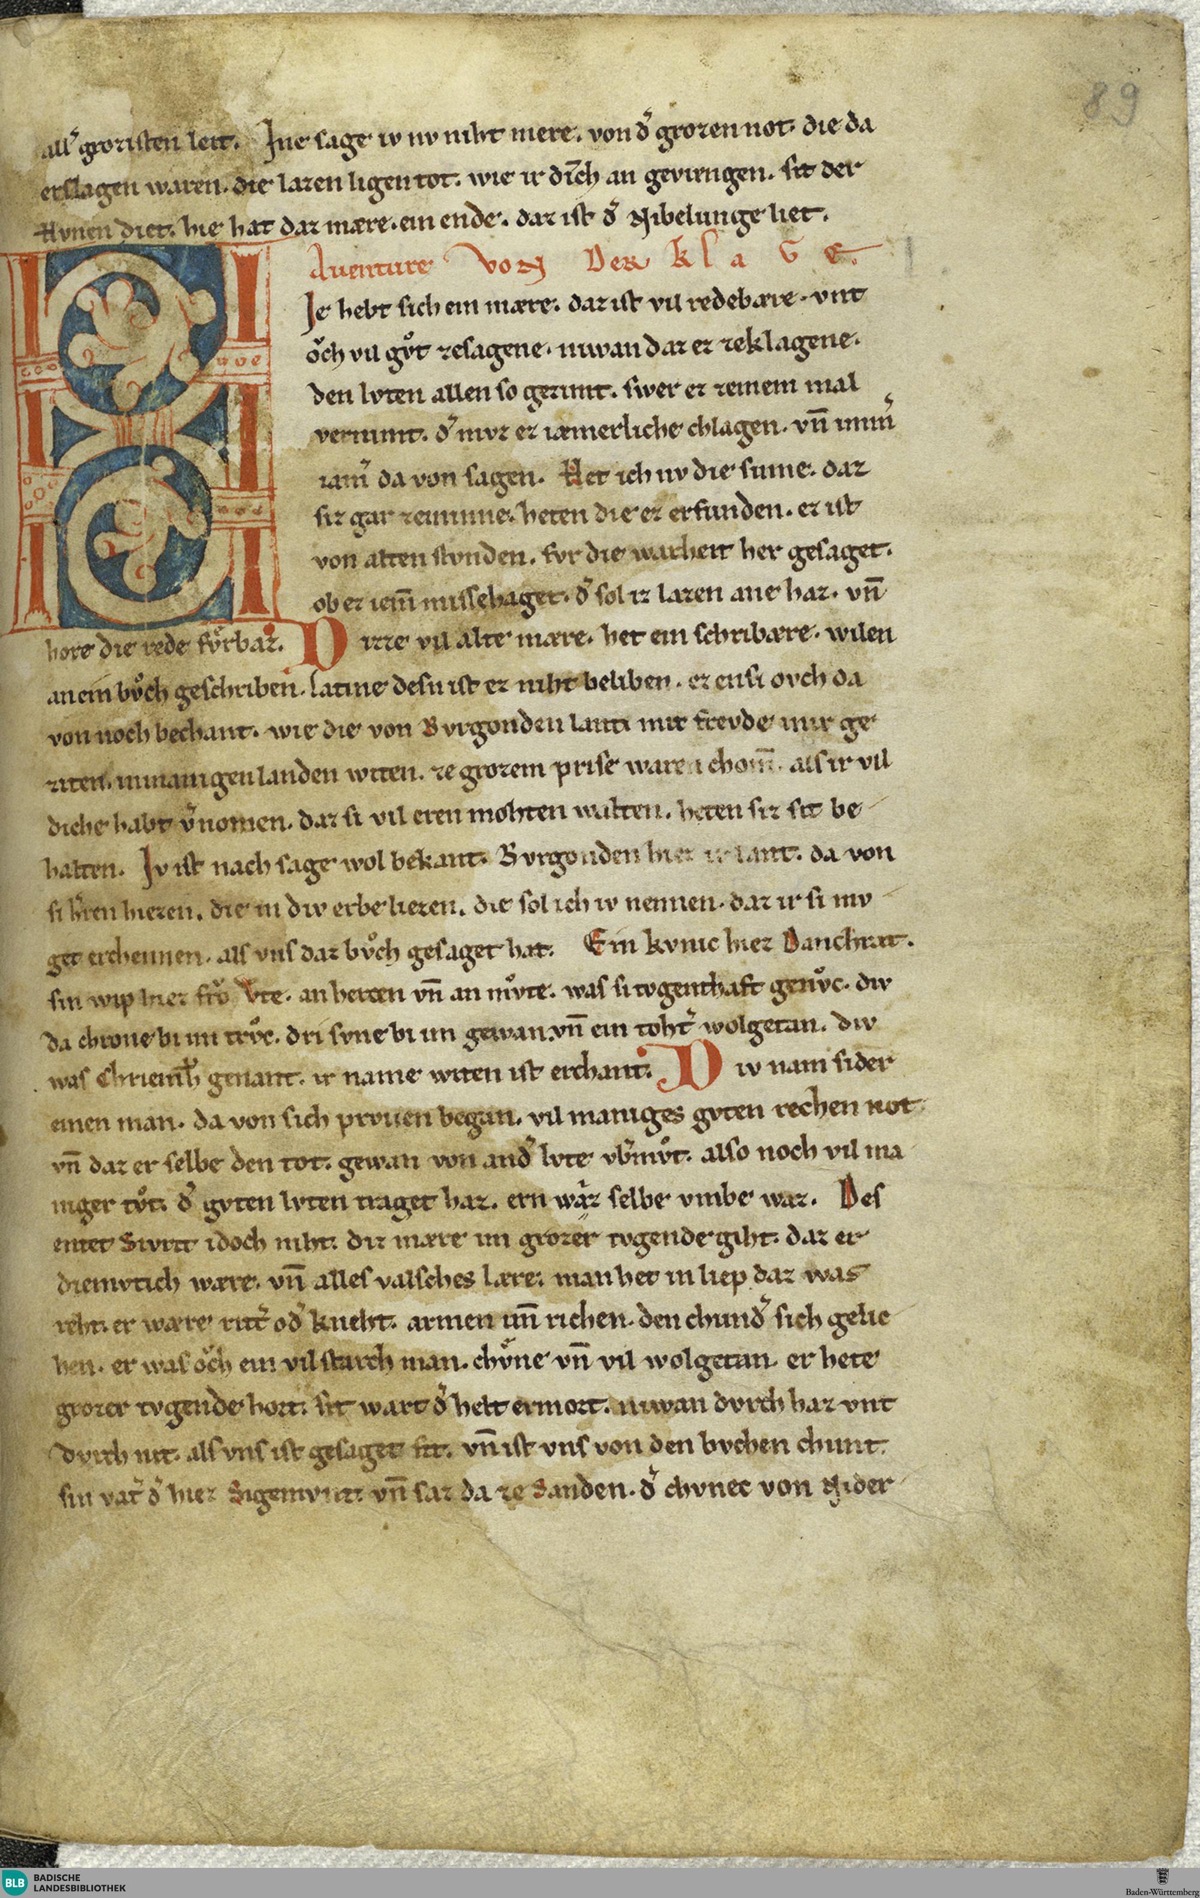 89
all' grozisten leit. Ine sage iv nv niht mere. von d' grozen not. die da
erslagen waren. die lazen ligen tot. wie ir dīch an geviengen. sit der
Hvnen diet. hie hat daz mære. ein ende. daz ist d' Nibelunge liet.
Aventure von Der klaGe.
Ie hebt sich ein mære. daz ist vil redebære. vnt
oͮch vil gvͦt zesagene. niwan daz ez zeklagene.
den lvten allen so gezimt. swer ez zeinem mal
vernimt. d' mvz ez iæmerliche chlagen. vn̄ imm'
iam' da von sagen. Het ich nv die sinne. daz
siz gar zeminne. heten die ez erfunden. ez ist
von alten stvnden. fvr die warheit her gesaget.
ob ez iem̄ missehaget. d' sol iz lazen ane haz. vn̄
hore die rede fvrbaz. Dizze vil alte mære. het ein schribære. wilen
an ein bvͦch geschriben. latine desn ist ez niht beliben. ez ensi ovch da
von noch bechant. wie die von Bvrgonden lant. mit frevde mir ge
ziten. in manigen landen witen. ze grozem prise waren chom̄. als ir vil
diche habt v'nomen. daz si vil eren mohten walten. heten siz sit be
halten. Iv ist nach sage wol bekant. Bvrgonden hiez ir lant. da von
si h'ren hiezen. die in div erbe liezen. die sol ich iv nennen. daz ir si mv
get erchennen. als vns daz bvͦch gesaget hat. Ein kvnic hiez Danchrat.
sin wip hiez froͮ Vte. an herzen vn̄ an mvͦte. was si tvgenthaft genvͦc. div
da chrone bi im trvͦc. dri svne bi im gewan. vn̄ ein toht' wolgetan. div
was Chriemh' genant. ir name witen ist erchant. Div nam sider
einen man. da von sich prvven began. vil maniges gvten rechen not
vn̄ daz er selbe den tot. gewan von and' lvte vb'mvͦt. also noch vil ma
niger tvͦt. d' gvten lvten traget haz. ern wær selbe vmbe waz. Des
entet Sivrit idoch niht. diz mære im grozer tvgende giht. daz er
diemvtich wære. vn̄ alles valsches lære. man het in liep daz was
reht. er wære rit' od' kneht. armen vn̄ richen. den chund' sich gelic
hen. er was oͮch ein vil starch man. chvͤne vn̄ vil wolgetan. er hete
grozer tvgende hort. sit wart d' helt ermort. niwan dvrch haz vnt
dvrch nit. als vns ist gesaget sit. vn̄ ist vns von den bvchen chunt.
sin vat' d' hiez Sigemvnt. vn̄ saz da ze Santen. d' chvnec von Nider
BLB BADISCHE
LANDESBIBLIOTHEK
Baden-Württemberg